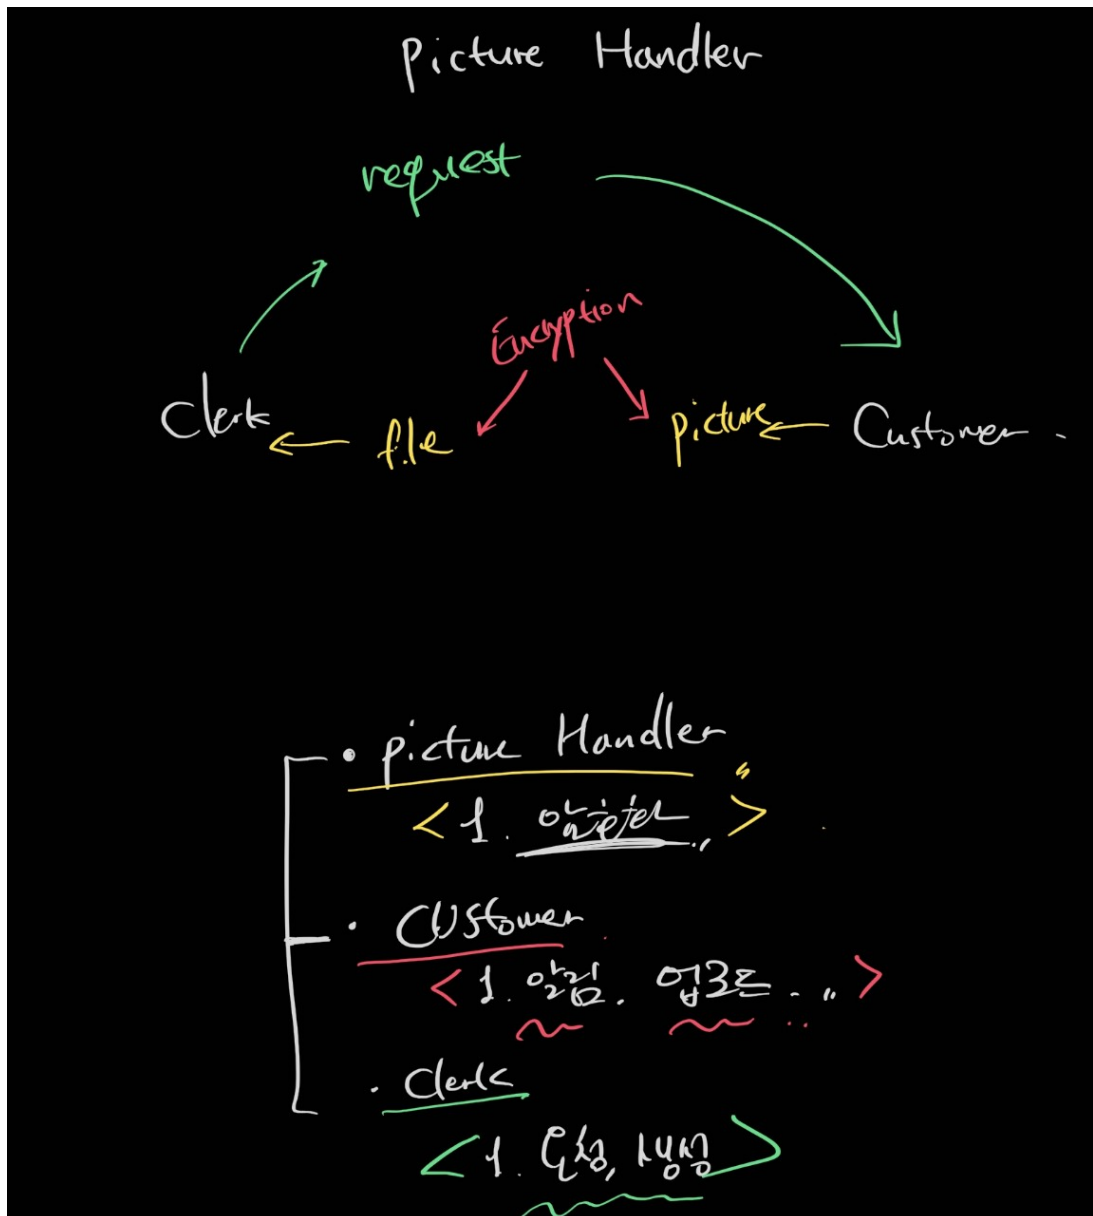 Picture Handler
request
Encryption
Clerk
file
picture
Customer
• picture Handler
< 1. 알고리즘 >
· Customer
< 1. 알림. 업로드 . .. >
· Clerk
< 1. 요청, 생성 >